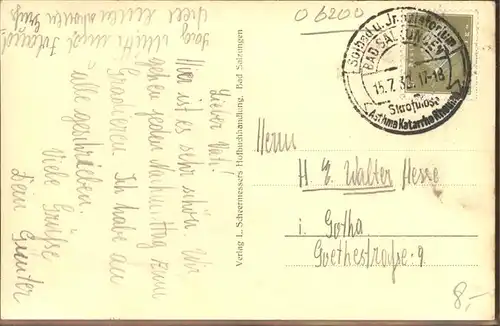 06200
Solbad u. Inhalatorium
BAD SALZUNGEN
15.7.32. 17-18
Skrofulose
Asthma Katarrhe Rheuma
Lieber Vit!
Hier ist es sehr schön. Wir
gehen jeden Nachmittag zum
Gradieren. Ich habe an
alle geschrieben.
Viele Grüße
Dein Günter
Verlag L. Scheermessers Hofbuchhandlung, Bad Salzungen
Herrn
H. E. Walter Hesse
i. Gotha
Goethestraße 9
8,-